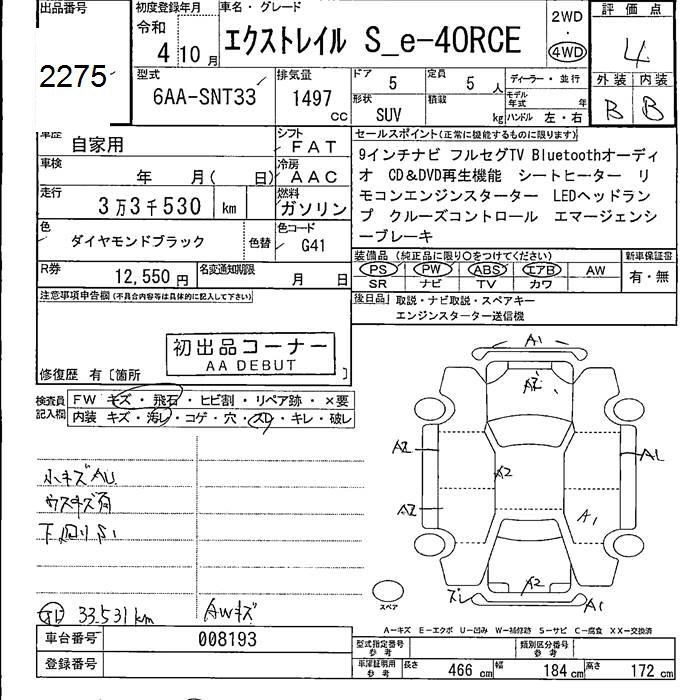 出品番号
2275
初度登録年月
令和
4年10月
車名・グレード
エクストレイル S_e-4ORCE
2WD
・
4WD
評価点
4
外装 内装
B B
型式
6AA-SNT33
排気量
1497
cc
ドア
5
定員
5 人
ディーラー・並行
形状
SUV
積載
kg
モデル年式 年
ハンドル 左・右
車歴
自家用
シフト
FAT
車検
年 月( 日)
冷房
AAC
走行
3万3千530 km
燃料
ガソリン
色
ダイヤモンドブラック
色替
色コード
G41
R券
12,550円
名変通知期限
月 日
セールスポイント(正常に機能するものに限ります)
9インチナビ フルセグTV Bluetoothオーディ
オ CD&DVD再生機能 シートヒーター リ
モコンエンジンスターター LEDヘッドラン
プ クルーズコントロール エマージェンシ
ーブレーキ
装備品(純正品に限り○をつけてください)
PS PW ABS エアB AW
SR ナビ TV カワ
新車保証書
有・無
後日品
取説・ナビ取説・スペアキー
エンジンスターター送信機
注意事項申告欄(不具合内容等は具体的に記入して下さい)
初出品コーナー
AA DEBUT
修復歴 有〔箇所 〕
検査員記入欄
FW キズ・飛石・ヒビ割・リペア跡・×要
内装 キズ・汚レ・コゲ・穴・スレ・キレ・破レ
小キズAU
ウスキズ有
下回りS1
33.531km
AWキズ
A1
A2
A2
A1
A2
A2
A1
A2
ズレ
A1
スペア
A-キズ E-エクボ U-凹み W-補修跡 S-サビ C-腐食 XX-交換済
車台番号
008193
登録番号
型式指定番号
参考
類別区分番号
参考
車庫証明用
参考
長さ
466 cm
幅
184 cm
高さ
172 cm